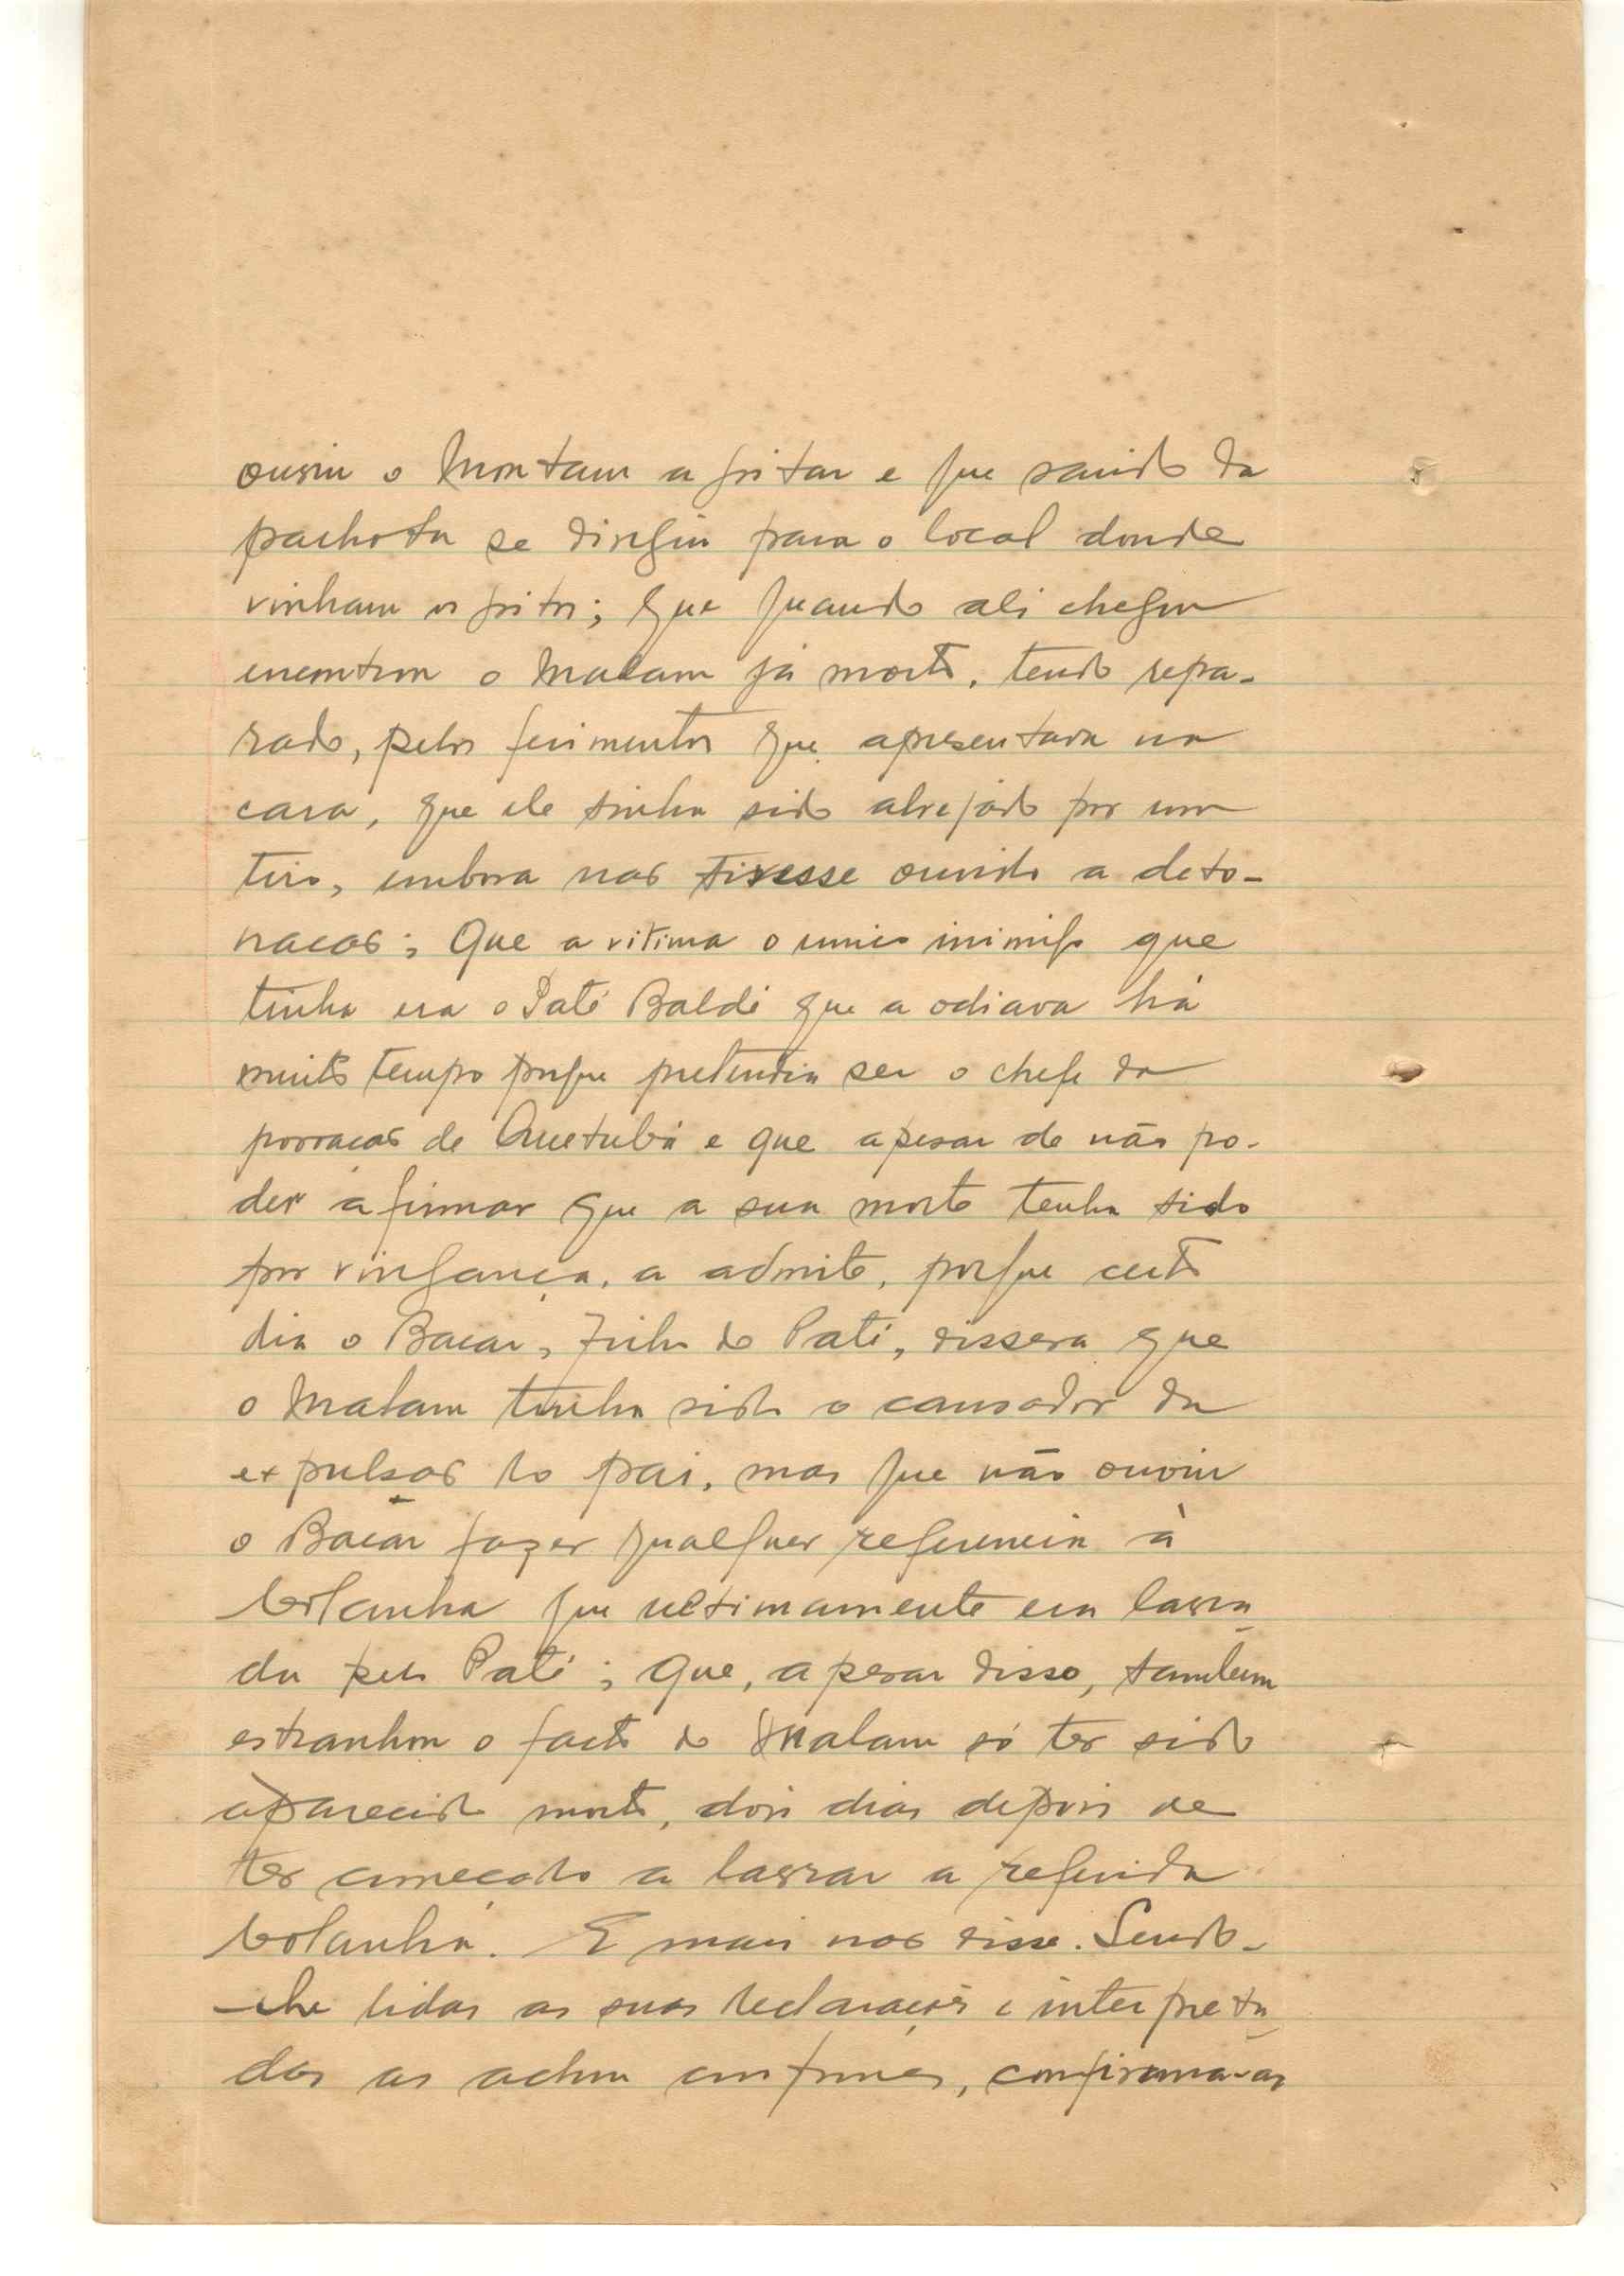 ouviu o Montam a gritar e que saindo da
palhota se dirigiu para o local donde
vinham os gritos; Que quando ali chegou
encontrou o Malam já morto, tendo repa-
rado, pelos ferimentos que apresentava na
cara, que ele tinha sido alvejado por um
tiro, embora nao tivesse ouvido a deto-
nacao; Que a vitima o unico inimigo que
tinha era o Paté Baldé que a odiava há
muito tempo porque pretendia ser o chefe da
povoacao de Quetubá e que apesar de não po-
der afirmar que a sua morte tenha sido
por vingança, a admite, porque certo
dia o Bacar, filho do Paté, dissera que
o Malam tinha sido o causador da
expulsao do pai, mas que não ouviu
o Bacar fazer qualquer referencia à
bolanha que ultimamente era lavra-
da pelo Paté; Que, apesar disso, tambem
estranhou o facto do Malam só ter sido
aparecido morto, dois dias depois de
ter começado a lavrar a referida
bolanha. E mais nao disse. Sendo-
-lhe lidas as suas declarações e interpreta-
das as achou conformes, confirma-as